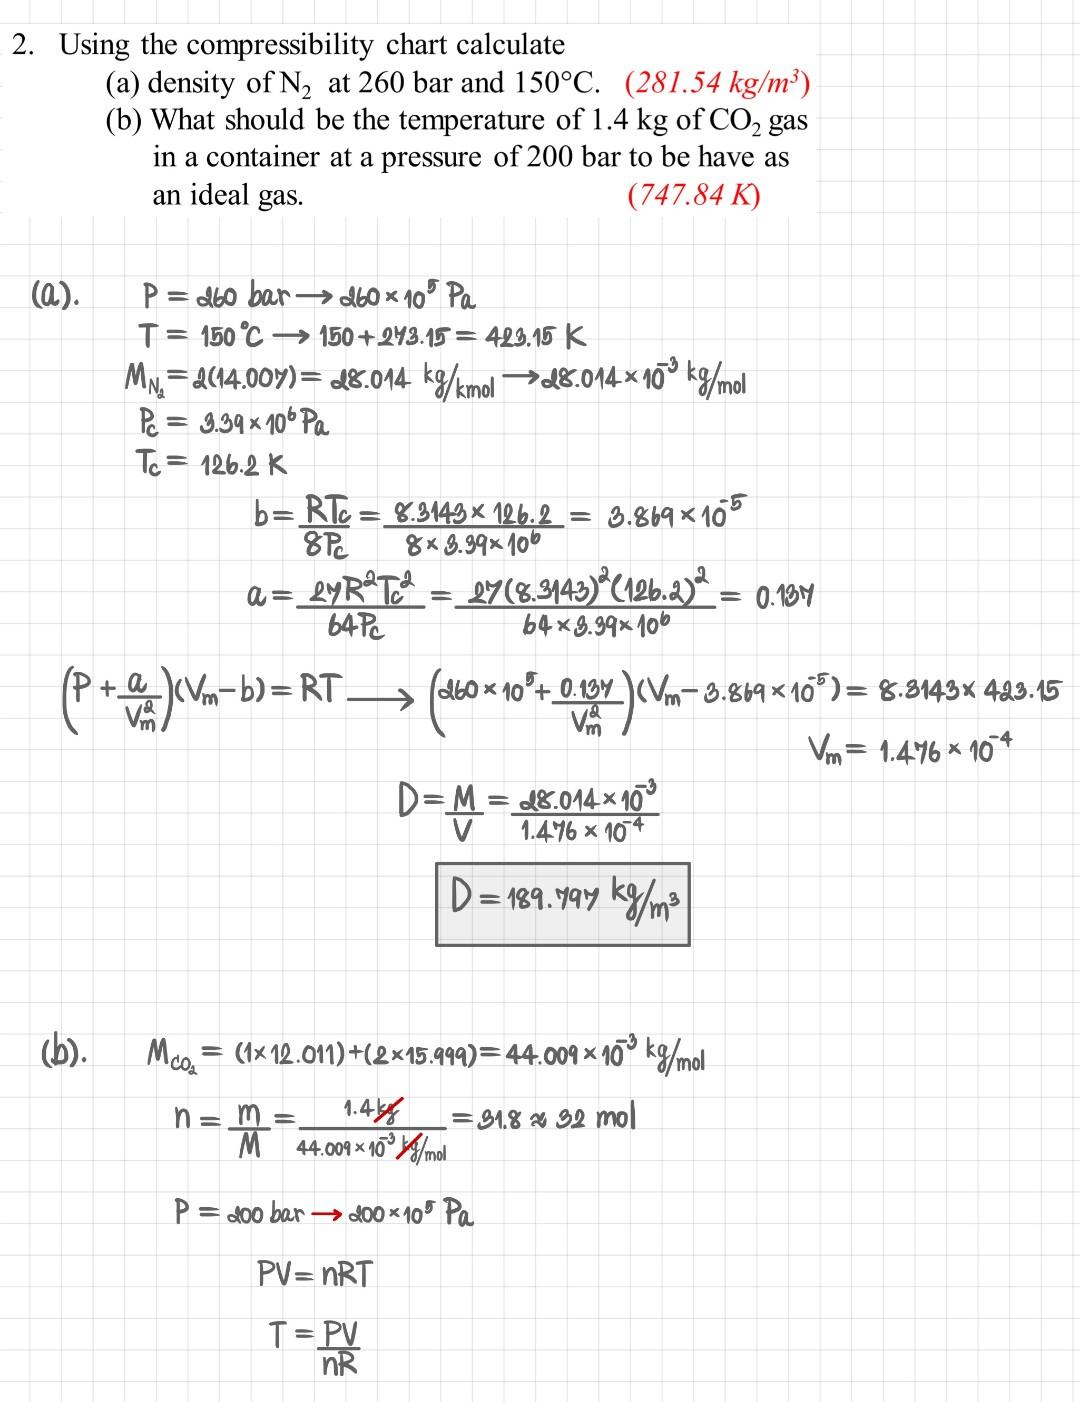 2. Using the compressibility chart calculate
(a) density of N₂ at 260 bar and 150°C. (281.54 kg/m³)
(b) What should be the temperature of 1.4 kg of CO₂ gas
in a container at a pressure of 200 bar to be have as
an ideal gas. (747.84 K)
(a). P = 260 bar → 260 × 10⁵ Pa
T = 150°C → 150 + 273.15 = 423.15 K
M_N₂ = 2(14.007) = 28.014 kg/kmol → 28.014 × 10⁻³ kg/mol
Pc = 3.39 × 10⁶ Pa
Tc = 126.2 K
b = RTc/8Pc = 8.3143 × 126.2/8 × 3.39 × 10⁶ = 3.869 × 10⁻⁵
a = 27R²Tc²/64Pc = 27(8.3143)²(126.2)²/64 × 3.39 × 10⁶ = 0.137
(P + a/Vm²)(Vm − b) = RT → (260 × 10⁵ + 0.137/Vm²)(Vm − 3.869 × 10⁻⁵) = 8.3143 × 423.15
Vm = 1.476 × 10⁻⁴
D = M/V = 28.014 × 10⁻³/1.476 × 10⁻⁴
D = 189.797 kg/m³
(b). M_CO₂ = (1×12.011)+(2×15.999) = 44.009 × 10⁻³ kg/mol
n = m/M = 1.4 kg/44.009 × 10⁻³ kg/mol = 31.8 ≈ 32 mol
P = 200 bar → 200 × 10⁵ Pa
PV = nRT
T = PV/nR